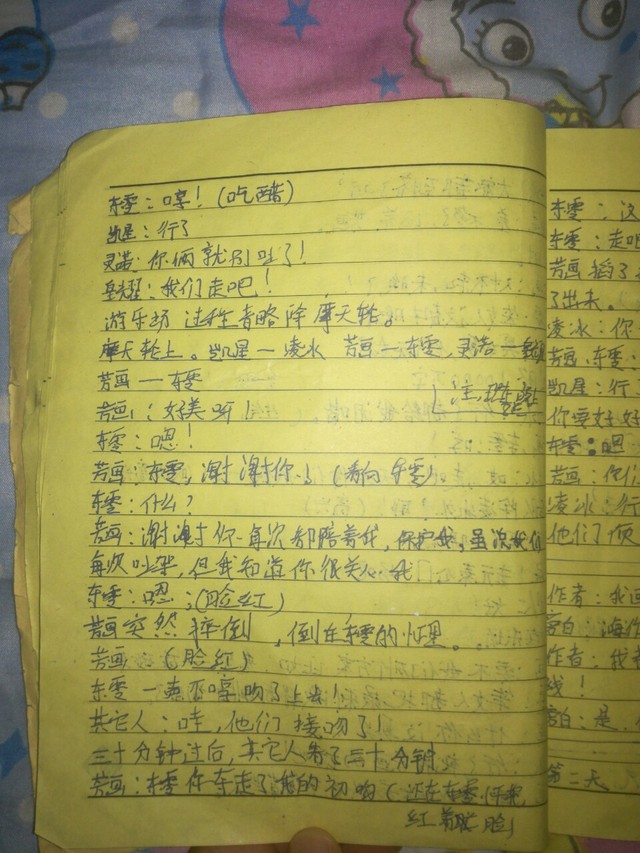 东雯：哼！(吃醋)
凯星：行了
灵浩：你俩就别吐了！
星耀：我们走吧！
游乐场 过程省略 除摩天轮。
摩天轮上。凯星一凌冰 芳画一东雯，灵浩一
芳画一东雯
芳画：好美呀！
注，
东雯：嗯！
芳画：东雯，谢谢你！(看向东雯)
东雯：什么？
芳画：谢谢你每次都陪着我，保护我，虽然我们
每次吵架，但我知道你很关心我
东雯：嗯；(脸红)
芳画突然摔倒，倒在东雯的怀里。
芳画(脸红)
东雯一声不哼吻了上去！
其它人：哇，他们接吻了！
三十分钟过后，其它人看了三十分钟
芳画：东雯你夺走了我的初吻(还在东雯怀里
红着脸)
东雯：这
东雯：走吧
芳画 了
了出来。
凌冰：你
芳画、东雯：
凯星：行
你要好好
东雯：嗯
芳画：你们
凌冰：行
他们
作者：我
旁白：
作者：我
线！
旁白：是
第二天